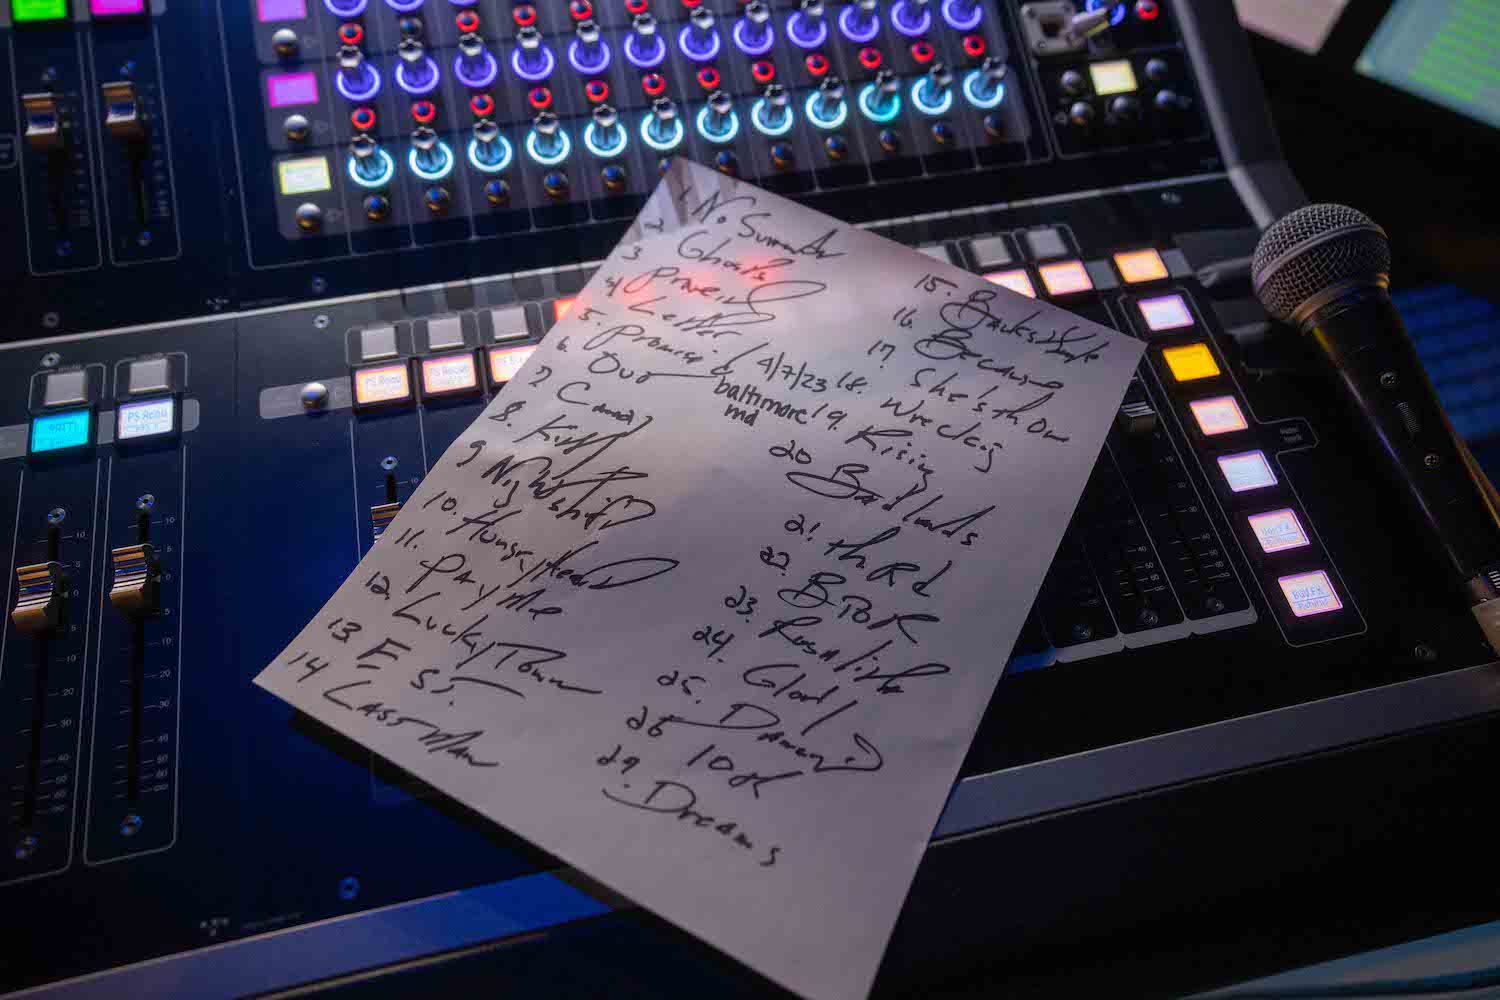 1. No Surrender
2. Ghosts
3 Prove it
4 Letter
5. Promised
6. Out
7 Candy
8. Kitty
9 Nightshift
10. Hungry Heart
11. Pay Me
12. Lucky Town
13 E St.
14 Last Man
4/7/23
baltimore
md
15. Backstreets
16. Because
17 She's the One
18. Wrecking
19. Rising
20 Badlands
21. thRd
22. BTOR
23. Rosalita
24. Glory
25. Dancing
26 10th
27. Dreams
PS Recv
PS Recv
PS Recv